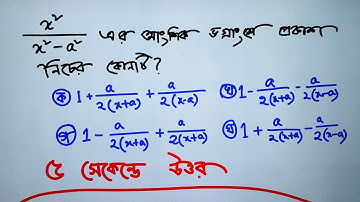 x²/(x²-a²) এর আংশিক ভগ্নাংশে প্রকাশ
নিচের কোনটি?
ক) 1 + a/2(x+a) + a/2(x-a) খ) 1 - a/2(x+a) - a/2(x-a)
গ) 1 - a/2(x+a) + a/2(x-a) ঘ) 1 + a/2(x+a) - a/2(x-a)
৫ সেকেন্ডে উত্তর